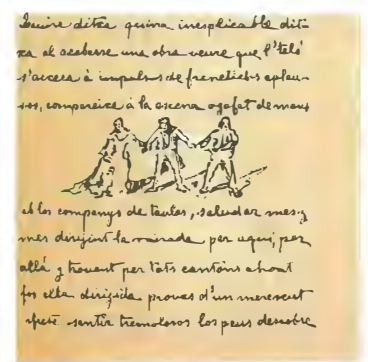 Quina ditxa quina inesplicable dit-
xa al acabarse una obra veure que l'teló
s'aixeca à impulsos de frenetichs aplau-
sos, compareixe à la escena agafat de mans
ab los companys de tantas, saludar mes y
mes dirigint la mirada per aqui, per
allá y trovant per tots cantóns ahont
fos ella dirigida provas d'un merescut
sentir tremolosos los peus